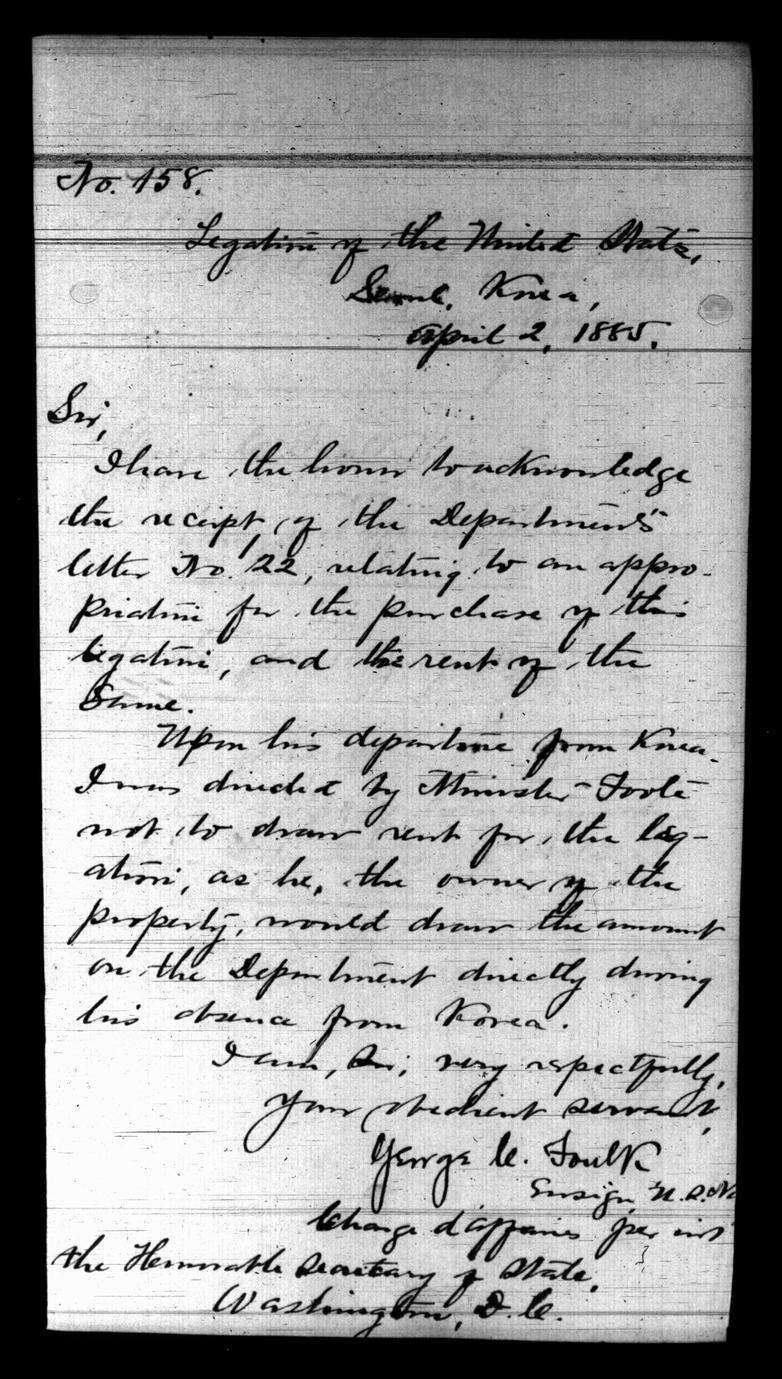 No. 158.
Legation of the United States,
Seoul, Korea,
April 2, 1885.
Sir,
I have the honor to acknowledge
the receipt of the Department's
letter No. 22, relating to an appro-
priation for the purchase of this
legation, and the rent of the
same.
Upon his departure from Korea
I was directed by Minister Foote
not to draw rent for the leg-
ation, as he, the owner of the
property, would draw the amount
on the Department directly during
his absence from Korea.
I am, Sir, very respectfully,
Your obedient servant,
George C. Foulk
Ensign U.S.N.
Charge d'affaires per int
the Honorable Secretary of State,
Washington, D.C.